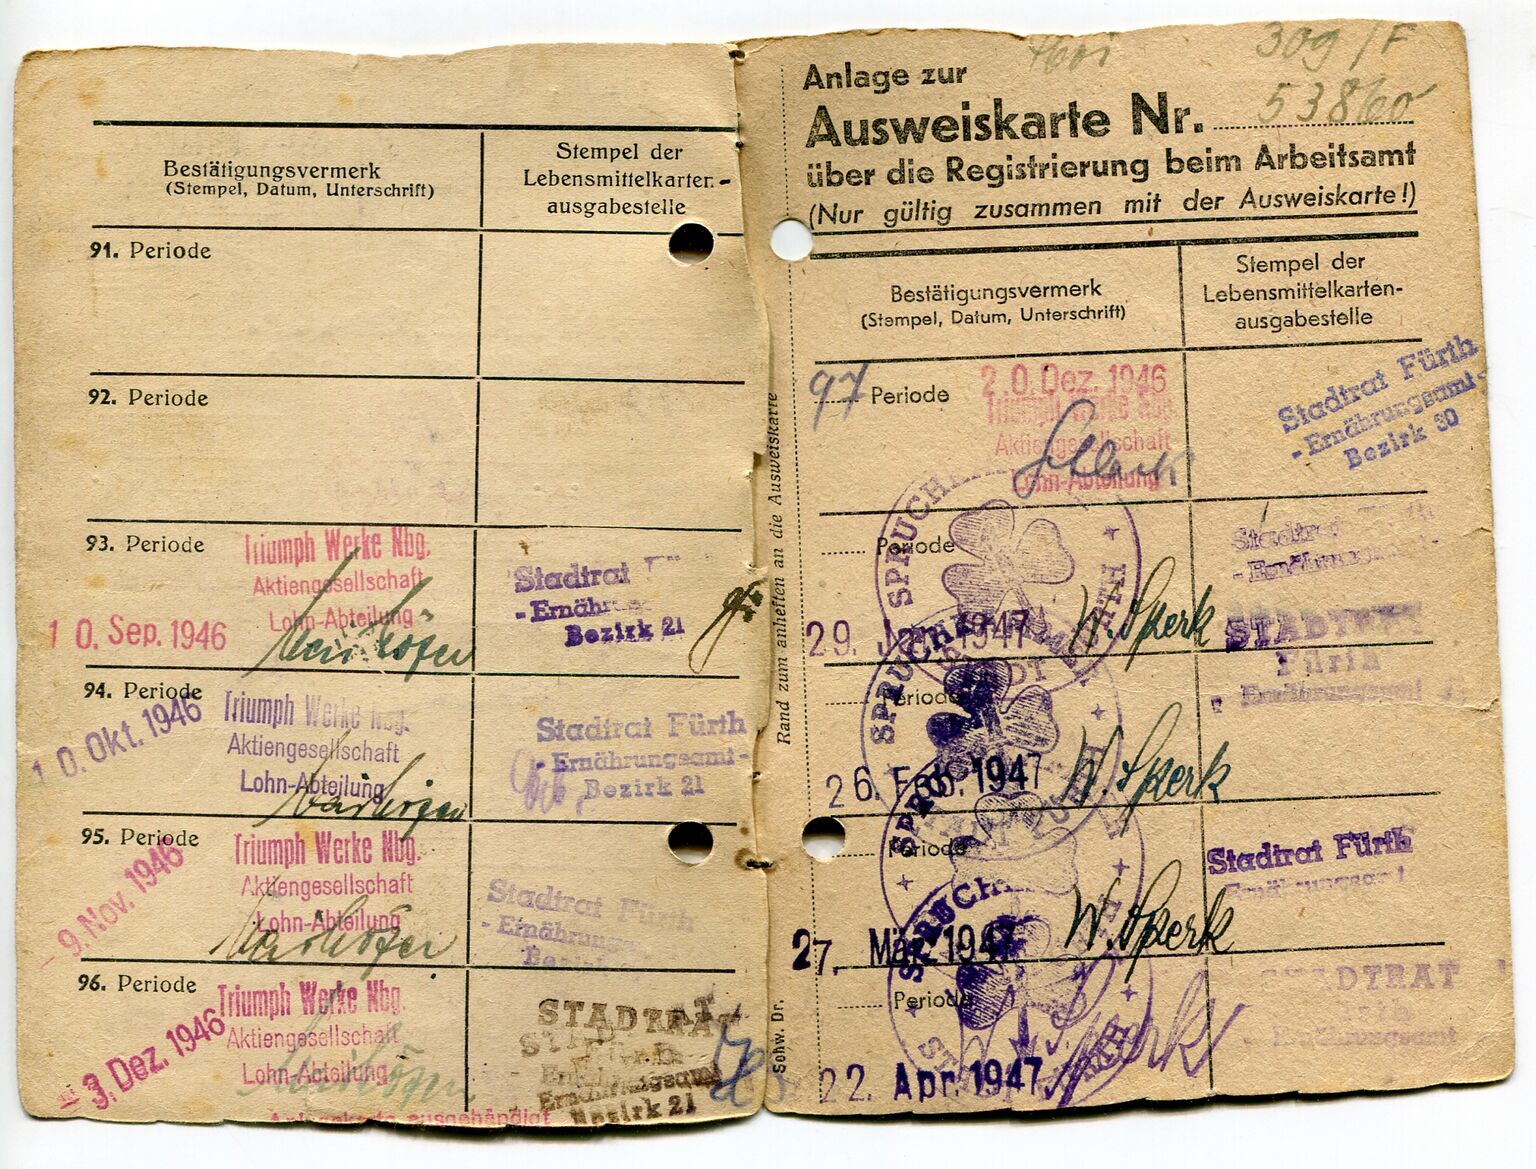 Bestätigungsvermerk
(Stempel, Datum, Unterschrift)
Stempel der
Lebensmittelkarten-
ausgabestelle
91. Periode
92. Periode
93. Periode
Triumph Werke Nbg.
Aktiengesellschaft
Lohn-Abteilung
10. Sep. 1946
Stadtrat
- Ernähr
Bezirk 21
94. Periode
10. Okt. 1946
Triumph Werke Nbg.
Aktiengesellschaft
Lohn-Abteilung
Stadtrat Fürth
- Ernährungsamt -
Bezirk 21
95. Periode
- 9. Nov. 1946
Triumph Werke Nbg.
Aktiengesellschaft
Lohn-Abteilung
Stadtrat Fürth
- Ernährungs
96. Periode
- 3. Dez. 1946
Triumph Werke Nbg.
Aktiengesellschaft
Lohn-Abteilung
ausgehändigt
STADTRAT
Ernährungsamt
Bezirk 21
Rand zum anheften an die Ausweiskarte
Schw. Dr.
309/F
Anlage zur
Ausweiskarte Nr. 53860
über die Registrierung beim Arbeitsamt
(Nur gültig zusammen mit der Ausweiskarte!)
Bestätigungsvermerk
(Stempel, Datum, Unterschrift)
Stempel der
Lebensmittelkarten-
ausgabestelle
97 Periode
20. Dez. 1946
Triumph Werke Nbg.
Aktiengesellschaft
Lohn-Abteilung
Stadtrat Fürth
- Ernährungsamt -
Bezirk 30
Periode
29. Jan. 1947
W. Sperk
Stadtrat
- Ernährungsamt -
STADTRAT
Fürth
- Ernährungsamt -
Periode
26. Feb. 1947
W. Sperk
Periode
27. März 1947
W. Sperk
Stadtrat Fürth
Ernährungsamt
Periode
22. Apr. 1947
Sperk
STADTRAT
Ernährungsamt